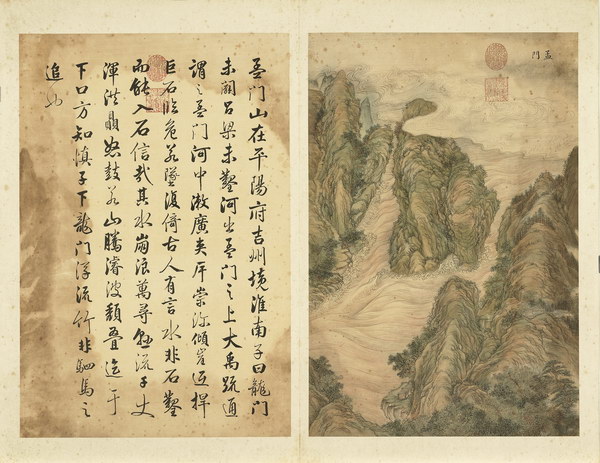 孟門
孟門山在平陽府吉州境淮南子曰龍門
未闢呂梁未鑿河出孟門之上大禹疏通
謂之孟門河中漱廣夾岸崇深傾崖返捍
巨石臨危若墜復倚古人有言水非石鑿
而能入石信哉其水崩浪萬尋懸流千丈
渾洪贔怒鼓若山騰濬波頹疊迄于
下口方知慎子下龍門浮流竹非駟馬之
追也